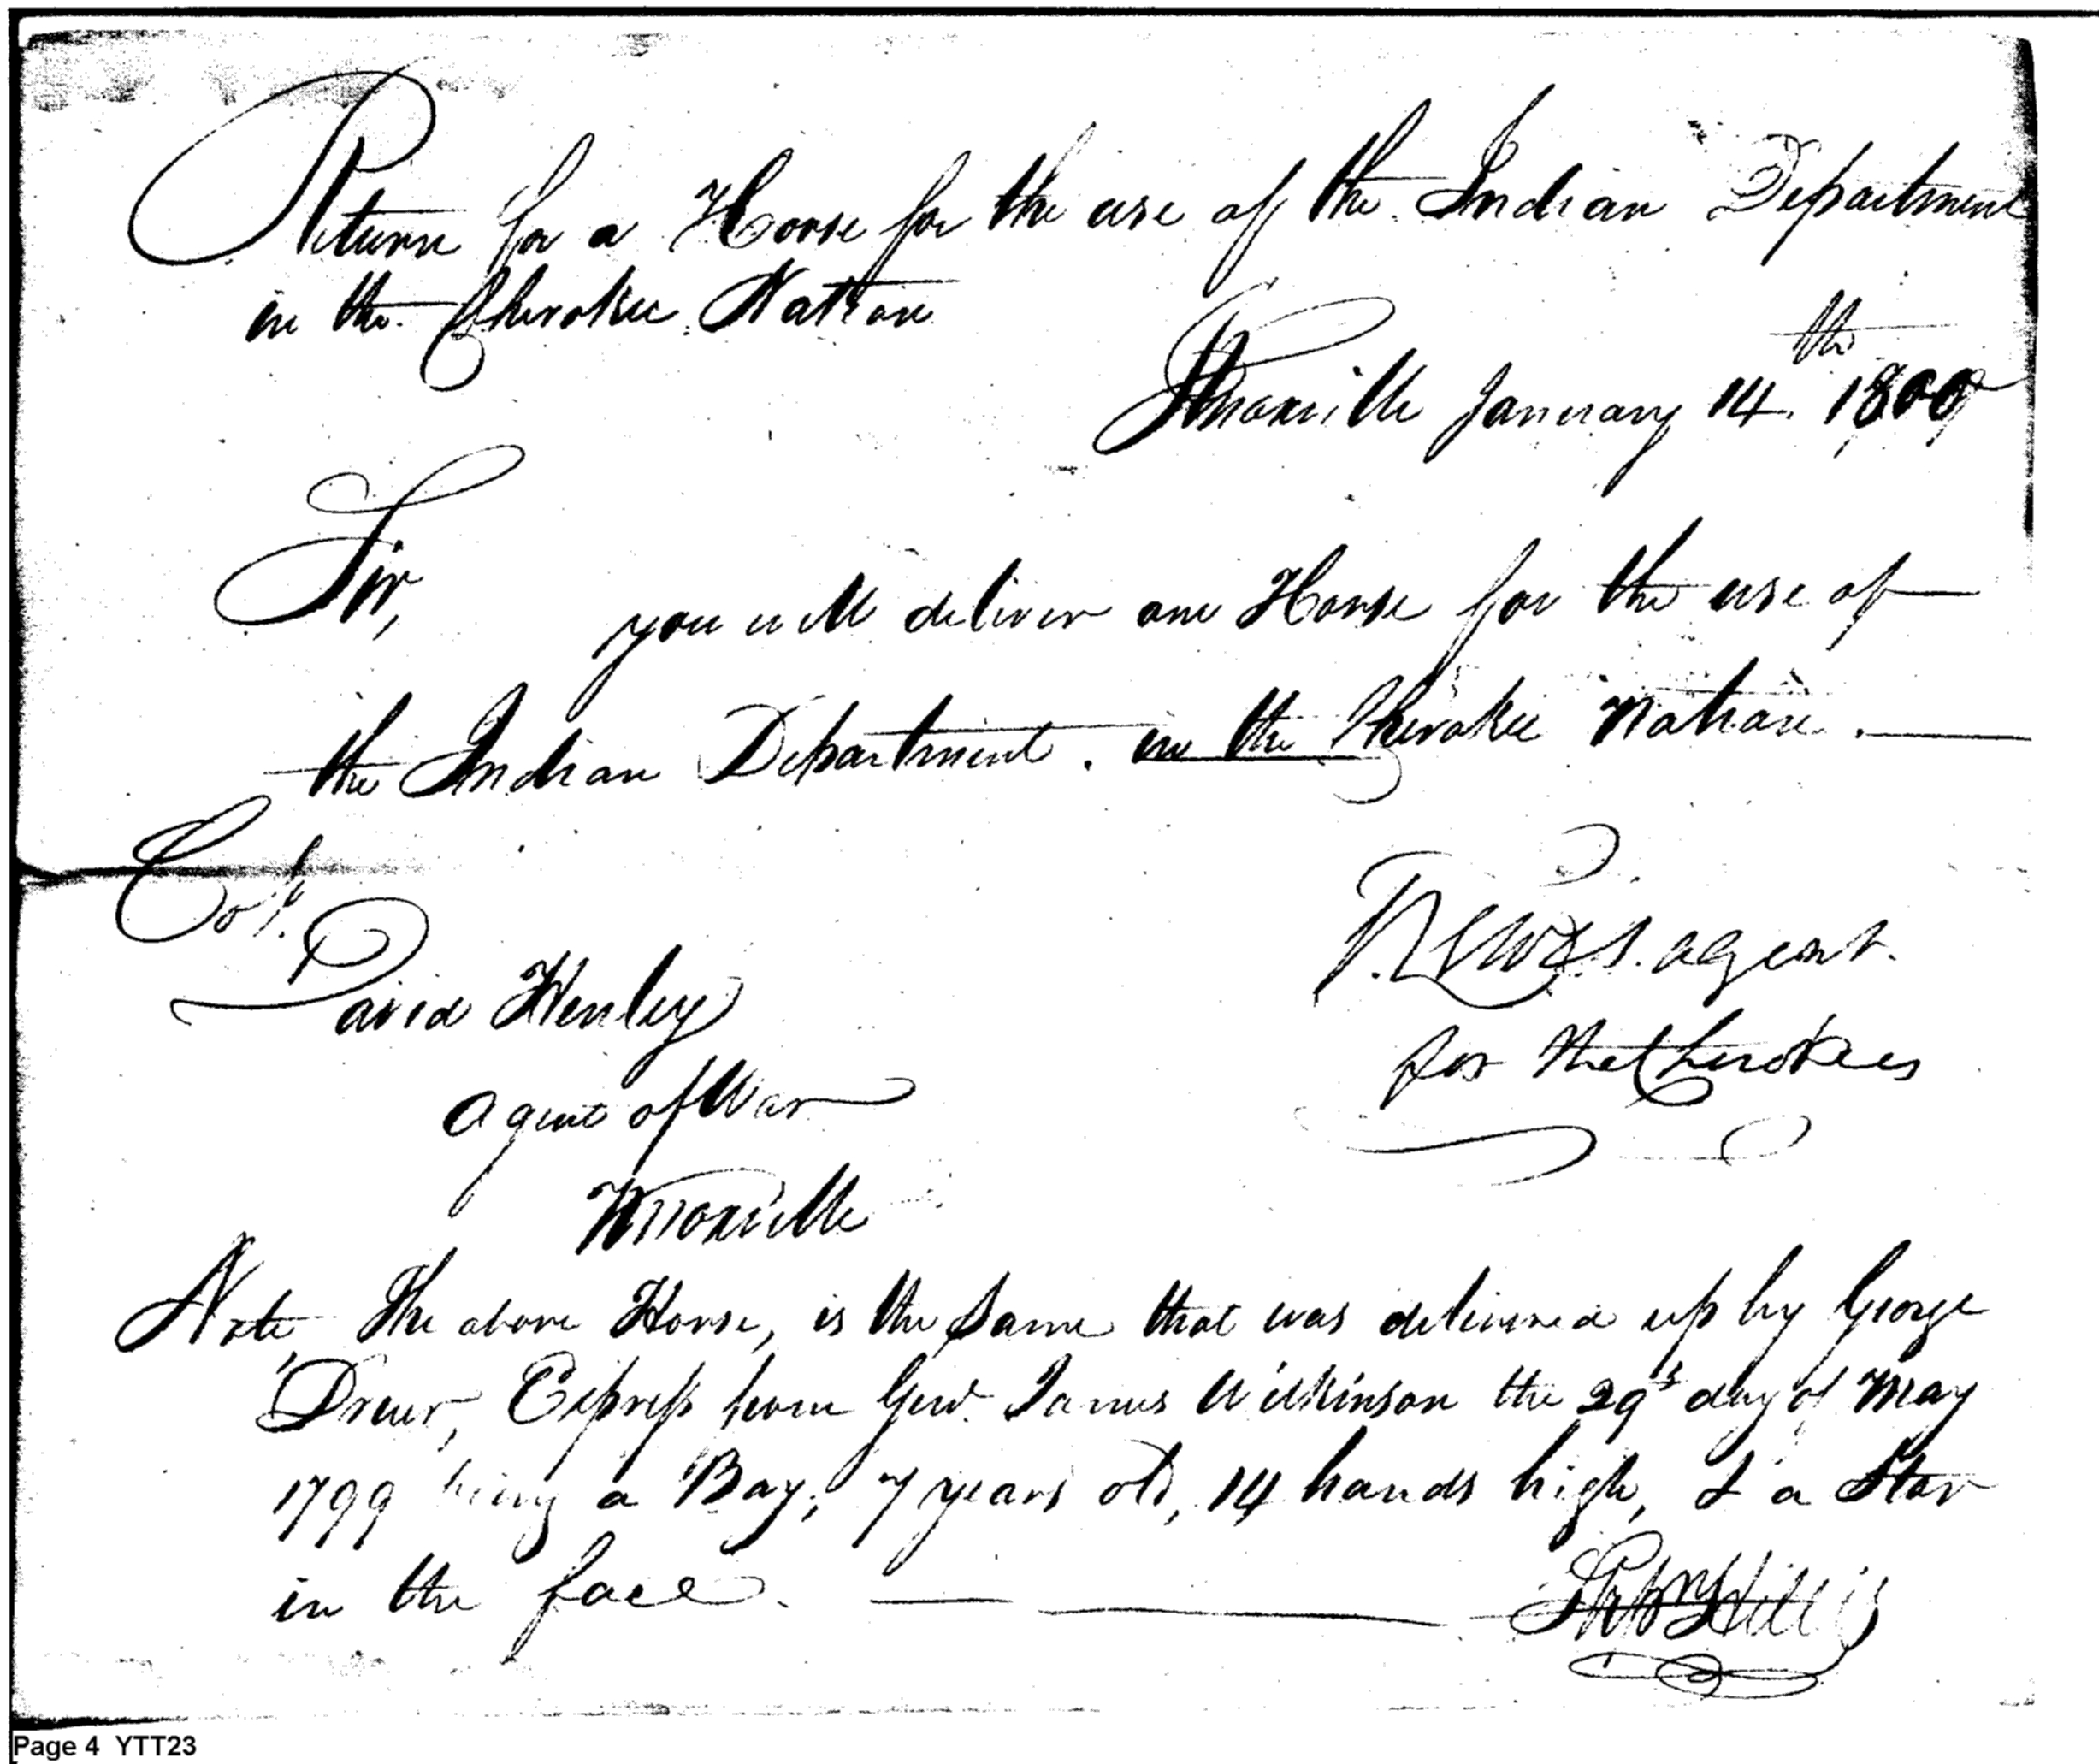 Return for a Horse for the use of the Indian Department
in the Cherokee Nation
Knoxville January 14th 1800
Sir,
you will deliver one Horse for the use of
the Indian Department. in the Cherokee Nation.
Col.
David Henley
Agent of War
Knoxville
T. Lewis. agent.
for the Cherokees
Note, The above Horse, is the same that was delivered up by George
Drewr, Express from Genl. James Wilkinson the 29th day of May
1799 being a Bay, 7 years old, 14 hands high, & a Star
in the face.
Hillis
Page 4 YTT23